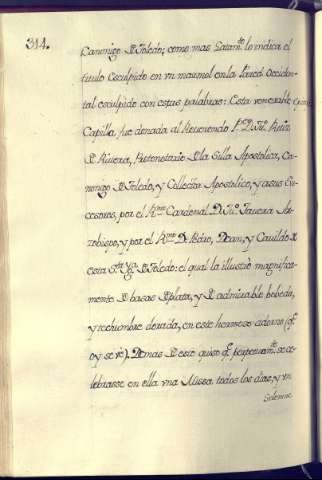 314.
Canonigo de Toledo; como mas Latamte. lo indica el
titulo Esculpido en un marmol en la Pared Occiden-
tal esculpido con estas palabras: Esta venerable
Capilla, fue donada al Reverendo Pe. D. Jun.
de Rivera, Protonotario de la Silla Apostolica, Ca-
nonigo de Toledo, y Collector Apostolico, y a sus Su-
cesores, por el Rmo. Cardenal D. Jun. Tavera Ar-
zobispo, y por el Rmo. D. Dean, y Cavildo de
esta Sta. Yga. de Toledo: el qual la illustró magnifica-
mente de basas de plata, y de admirable bobeda,
y techumbre dorada, en este hermoso adorno (qe.
oy se vé). Demas de esto quiso qe. perpetuamte. se ce-
lebrasse en ella una Missa todos los dias, y un
Solemne